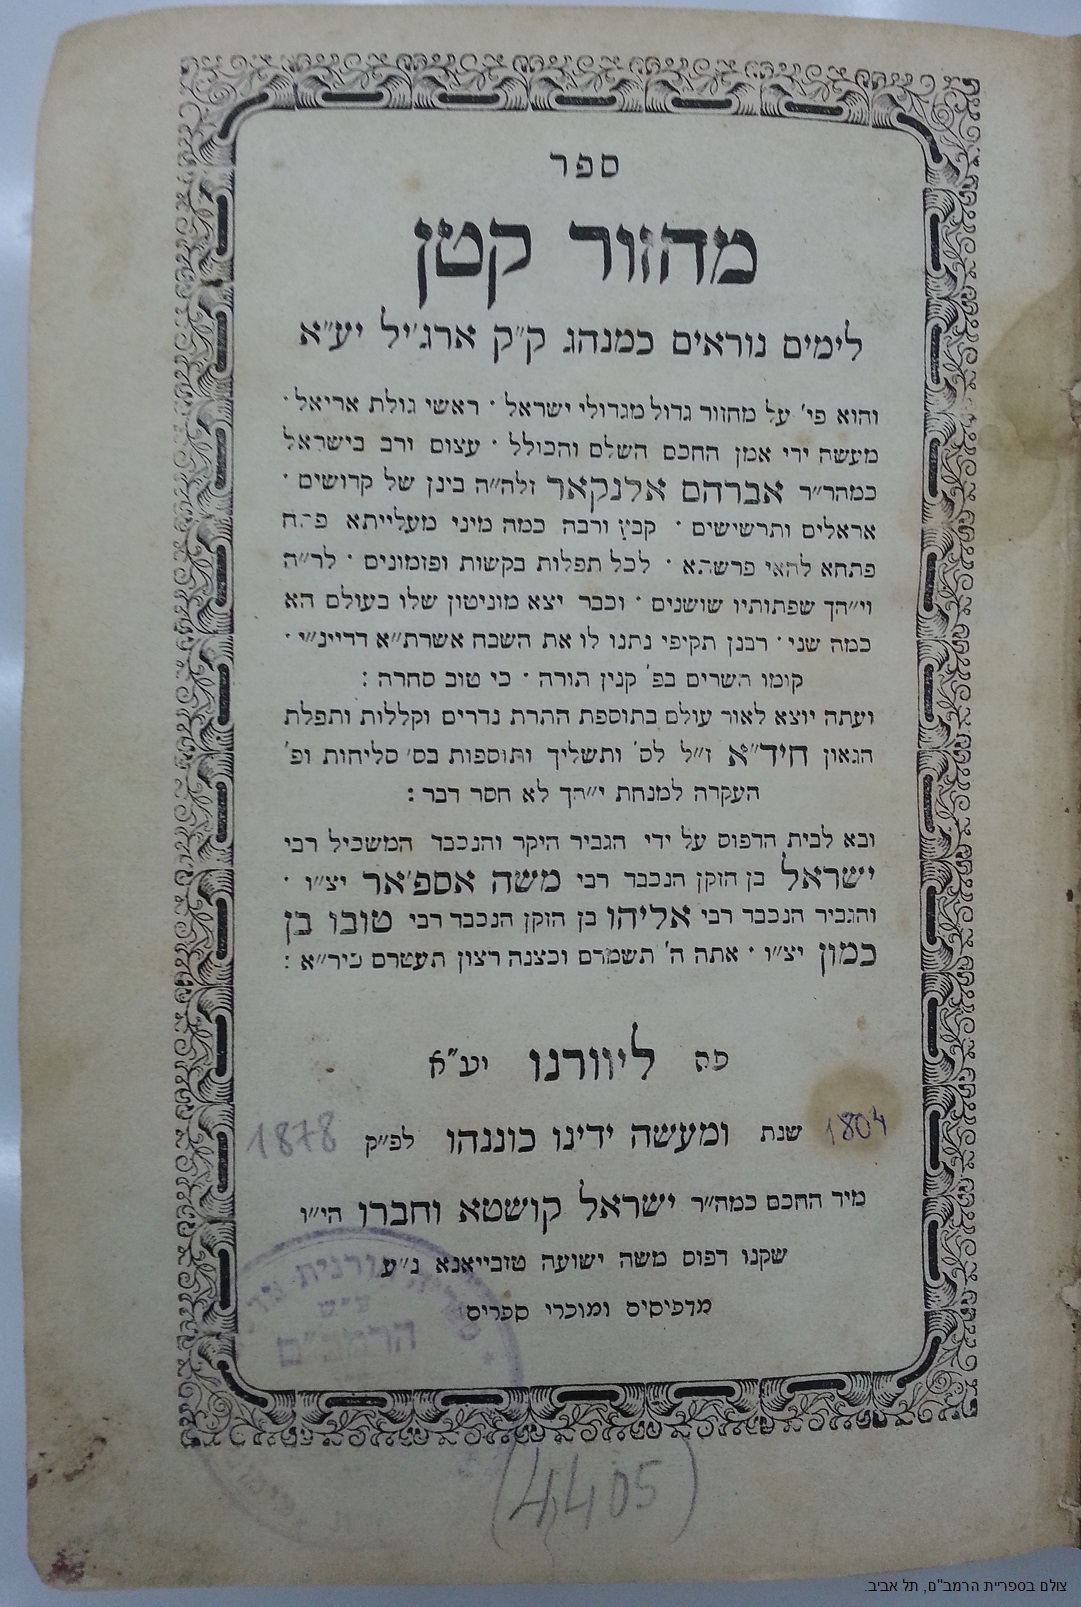 ספר
מחזור קטן
לימים נוראים כמנהג ק״ק ארג׳יל יע״א
והוא פי׳ על מחזור גדול מגדולי ישראל · ראשי גולת אריאל ·
מעשה ידי אמן החכם השלם והכולל · עצום ורב בישראל
כמהר״ר אברהם אלנקאר זלה״ה בינן של קדושים ·
אראלים ותרשישים · קבץ ורבה כמה מיני מעלייתא פתח
פתחא להאי פרשתא · לכל תפלות בקשות ופזמונים · לר״ה
וי״הך שפתותיו שושנים · וכבר יצא מוניטון שלו בעולם הא
כמה שני · רבנן תקיפי נתנו לו את השבח אשרת״א דדייני״י ·
קומו השרים בפ׳ קנין תורה · כי טוב סחרה :
ועתה יוצא לאור עולם בתוספת התרת נדרים וקללות ותפלת
הגאון חיד״א ז״ל לס׳ ותשליך ותוספות בס׳ סליחות ופ׳
העקרה למנחת י״הך לא חסר דבר :
ובא לבית הדפוס על ידי הגביר היקר והנכבד המשכיל רבי
ישראל בן הזקן הנכבד רבי משה אספ׳אר יצ״ו ·
והגביר הנכבד רבי אליהו בן הזקן הנכבד רבי טובו בן
כמון יצ״ו · אתה ה׳ תשמרם וכצנה רצון תעטרם כיר״א :
פה ליוורנו יע״א
1804 שנת ומעשה ידינו כוננהו לפ״ק 1878
מיד החכם כמה״ר ישראל קושטא וחברו הי״ו
שקנו דפוס משה ישועה טובייאנא נ״ע
מדפיסים ומוכרי ספרים
הרמב״ם
(4405)
צולם בספריית הרמב"ם, תל אביב.